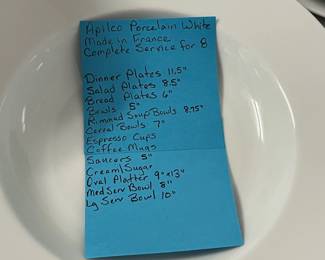 Apilco Porcelain White
Made in France
Complete Service for 8
Dinner Plates 11.5"
Salad Plates 8.5"
Bread Plates 6"
Bowls 5"
Rimmed Soup Bowls 8.75"
Cereal Bowls 7"
Espresso Cups
Coffee Mugs
Saucers 5"
Cream/Sugar
Oval Platter 9"x13"
Med Serv Bowl 8"
Lg Serv Bowl 10"